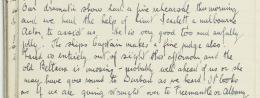 Our dramatic show had a fine rehearsal this morning
and we had the help of him! Jackett a melbourne
Actor to assist us. He is very good too and awfully
jolly. The ships Captain makes a fine judge also.
Land is entirely out of sight this afternoon and the
old Miltiades is missing - probably well ahead of us or she
may have gone round to Durban as we heard. It looks
as if we are going straight over to Fremantle or Albany